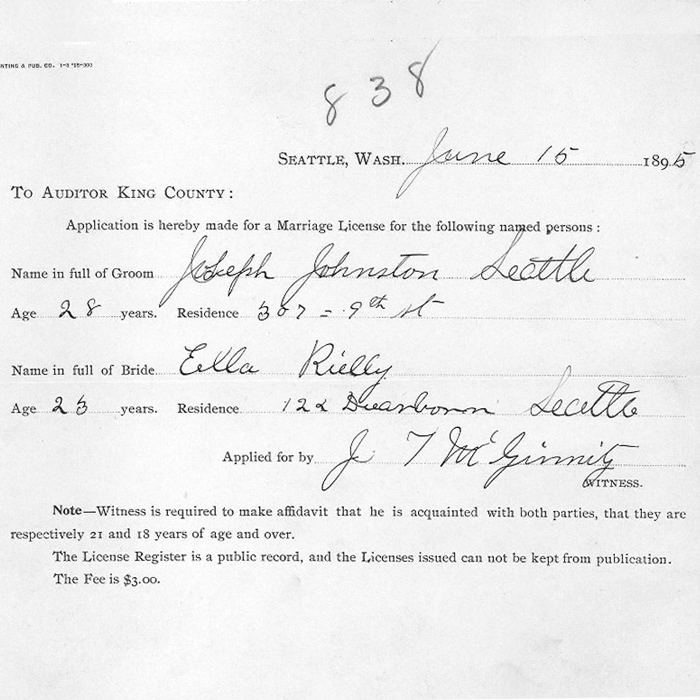 838
SEATTLE, WASH. June 15 1895
TO AUDITOR KING COUNTY:
Application is hereby made for a Marriage License for the following named persons:
Name in full of Groom Joseph Johnston Seattle
Age 28 years. Residence 307 = 9th st
Name in full of Bride Ella Rielly
Age 23 years. Residence 122 Dearborn Seattle
Applied for by J. T McGinnity
WITNESS.
Note—Witness is required to make affidavit that he is acquainted with both parties, that they are
respectively 21 and 18 years of age and over.
The License Register is a public record, and the Licenses issued can not be kept from publication.
The Fee is $3.00.